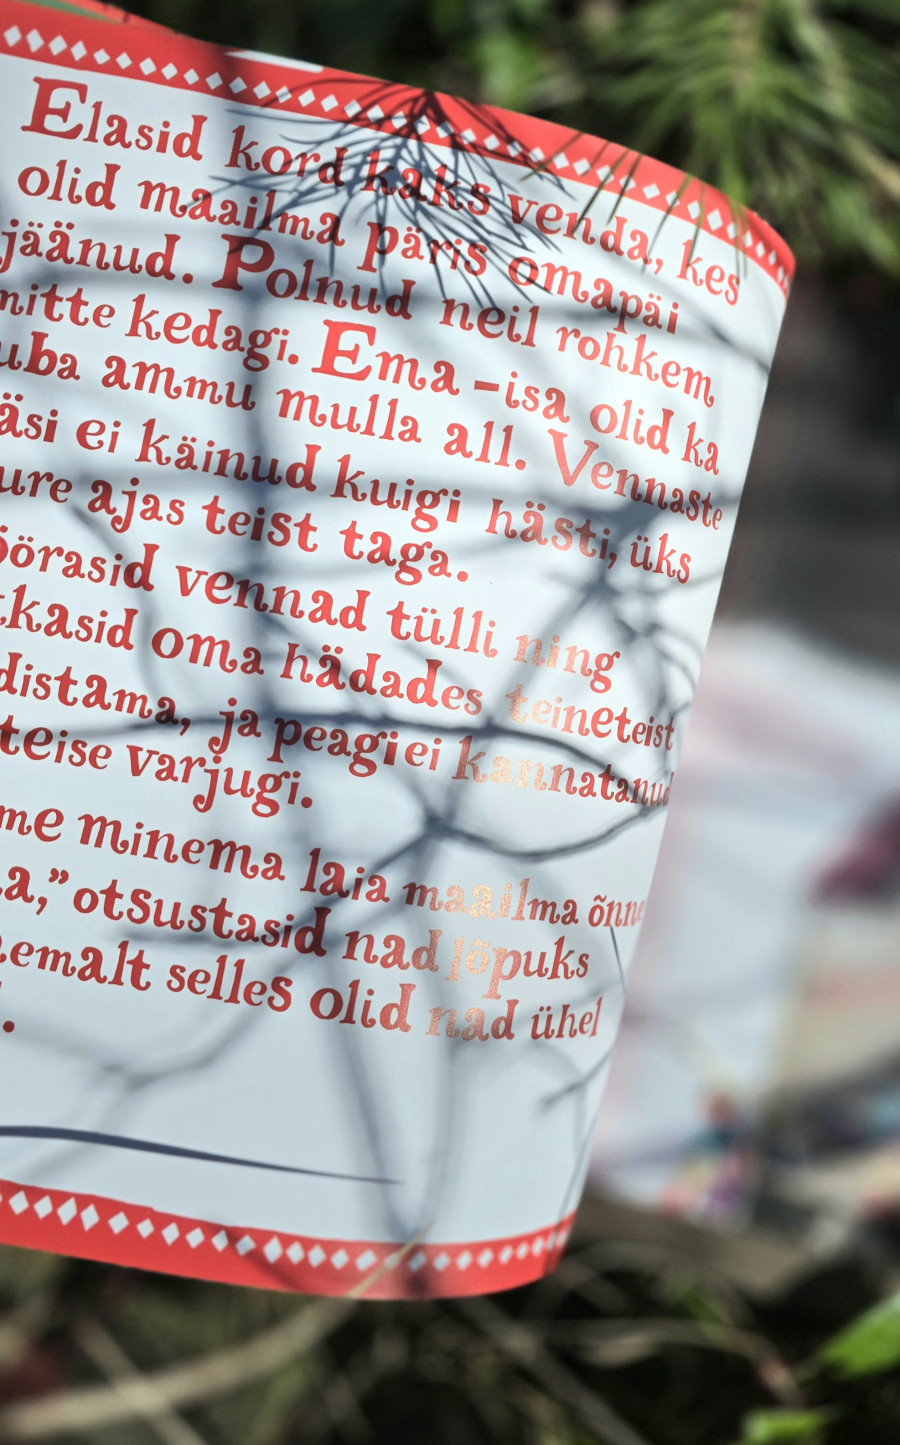 Elasid kord kaks venda, kes
olid maailma päris omapäi
jäänud. Polnud neil rohkem
mitte kedagi. Ema-isa olid ka
uba ammu mulla all. Vennaste
äsi ei käinud kuigi hästi, üks
ure ajas teist taga.
öörasid vennad tülli ning
kkasid oma hädades teineteist
distama, ja peagi ei kannatanud
teise varjugi.
me minema laia maailma õnne
a,” otsustasid nad lõpuks
emalt selles olid nad ühel
.